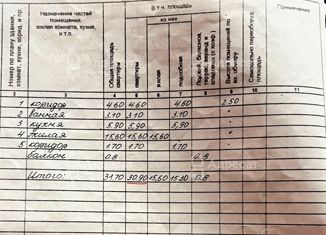 Номер по плану здания, комнат, кухни, корид. и пр.
Назначение частей помещения: жилая комната, кухня, и т.п.
Общая площадь квартиры
В т.ч. площадь
квартиры
из нее
жилая
подсобная
Высота помещений по
Самовольно переоборуд. площадь
Примечание
2 3 4 5 6 7 8 9 10 11
1 коридор 4.60 4.60 4.60 2.50
2 ванная 3.10 3.10 3.10 "
3 кухня 5.90 5.90 5.90 "
4 жилая 15.60 15.60 15.60 "
5 коридор 1.70 1.70 1.70 "
балкон 0.8 0.8
Итого: 31.70 30.90 15.60 15.30 0.8